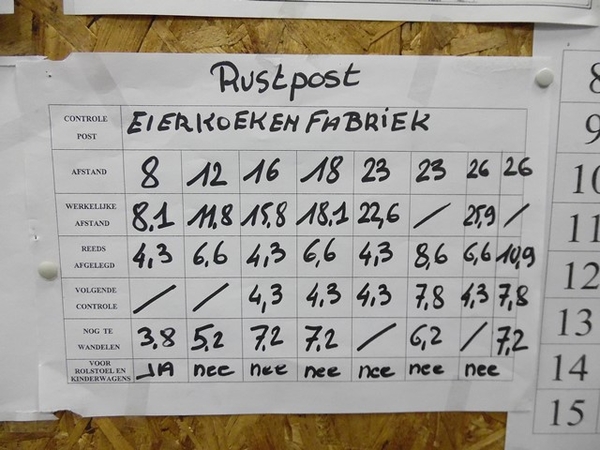 Rustpost
CONTROLE POST EIERKOEKEN FABRIEK
AFSTAND 8 12 16 18 23 23 26 26
WERKELIJKE AFSTAND 8,1 11,8 15,8 18,1 22,6 / 25,9 /
REEDS AFGELEGD 4,3 6,6 4,3 6,6 4,3 8,6 6,6 10,9
VOLGENDE CONTROLE / / 4,3 4,3 4,3 7,8 4,3 7,8
NOG TE WANDELEN 3,8 5,2 7,2 7,2 / 6,2 / 7,2
VOOR ROLSTOEL EN KINDERWAGENS JA nee nee nee nee nee nee
8
9
10
11
12
13
14
15